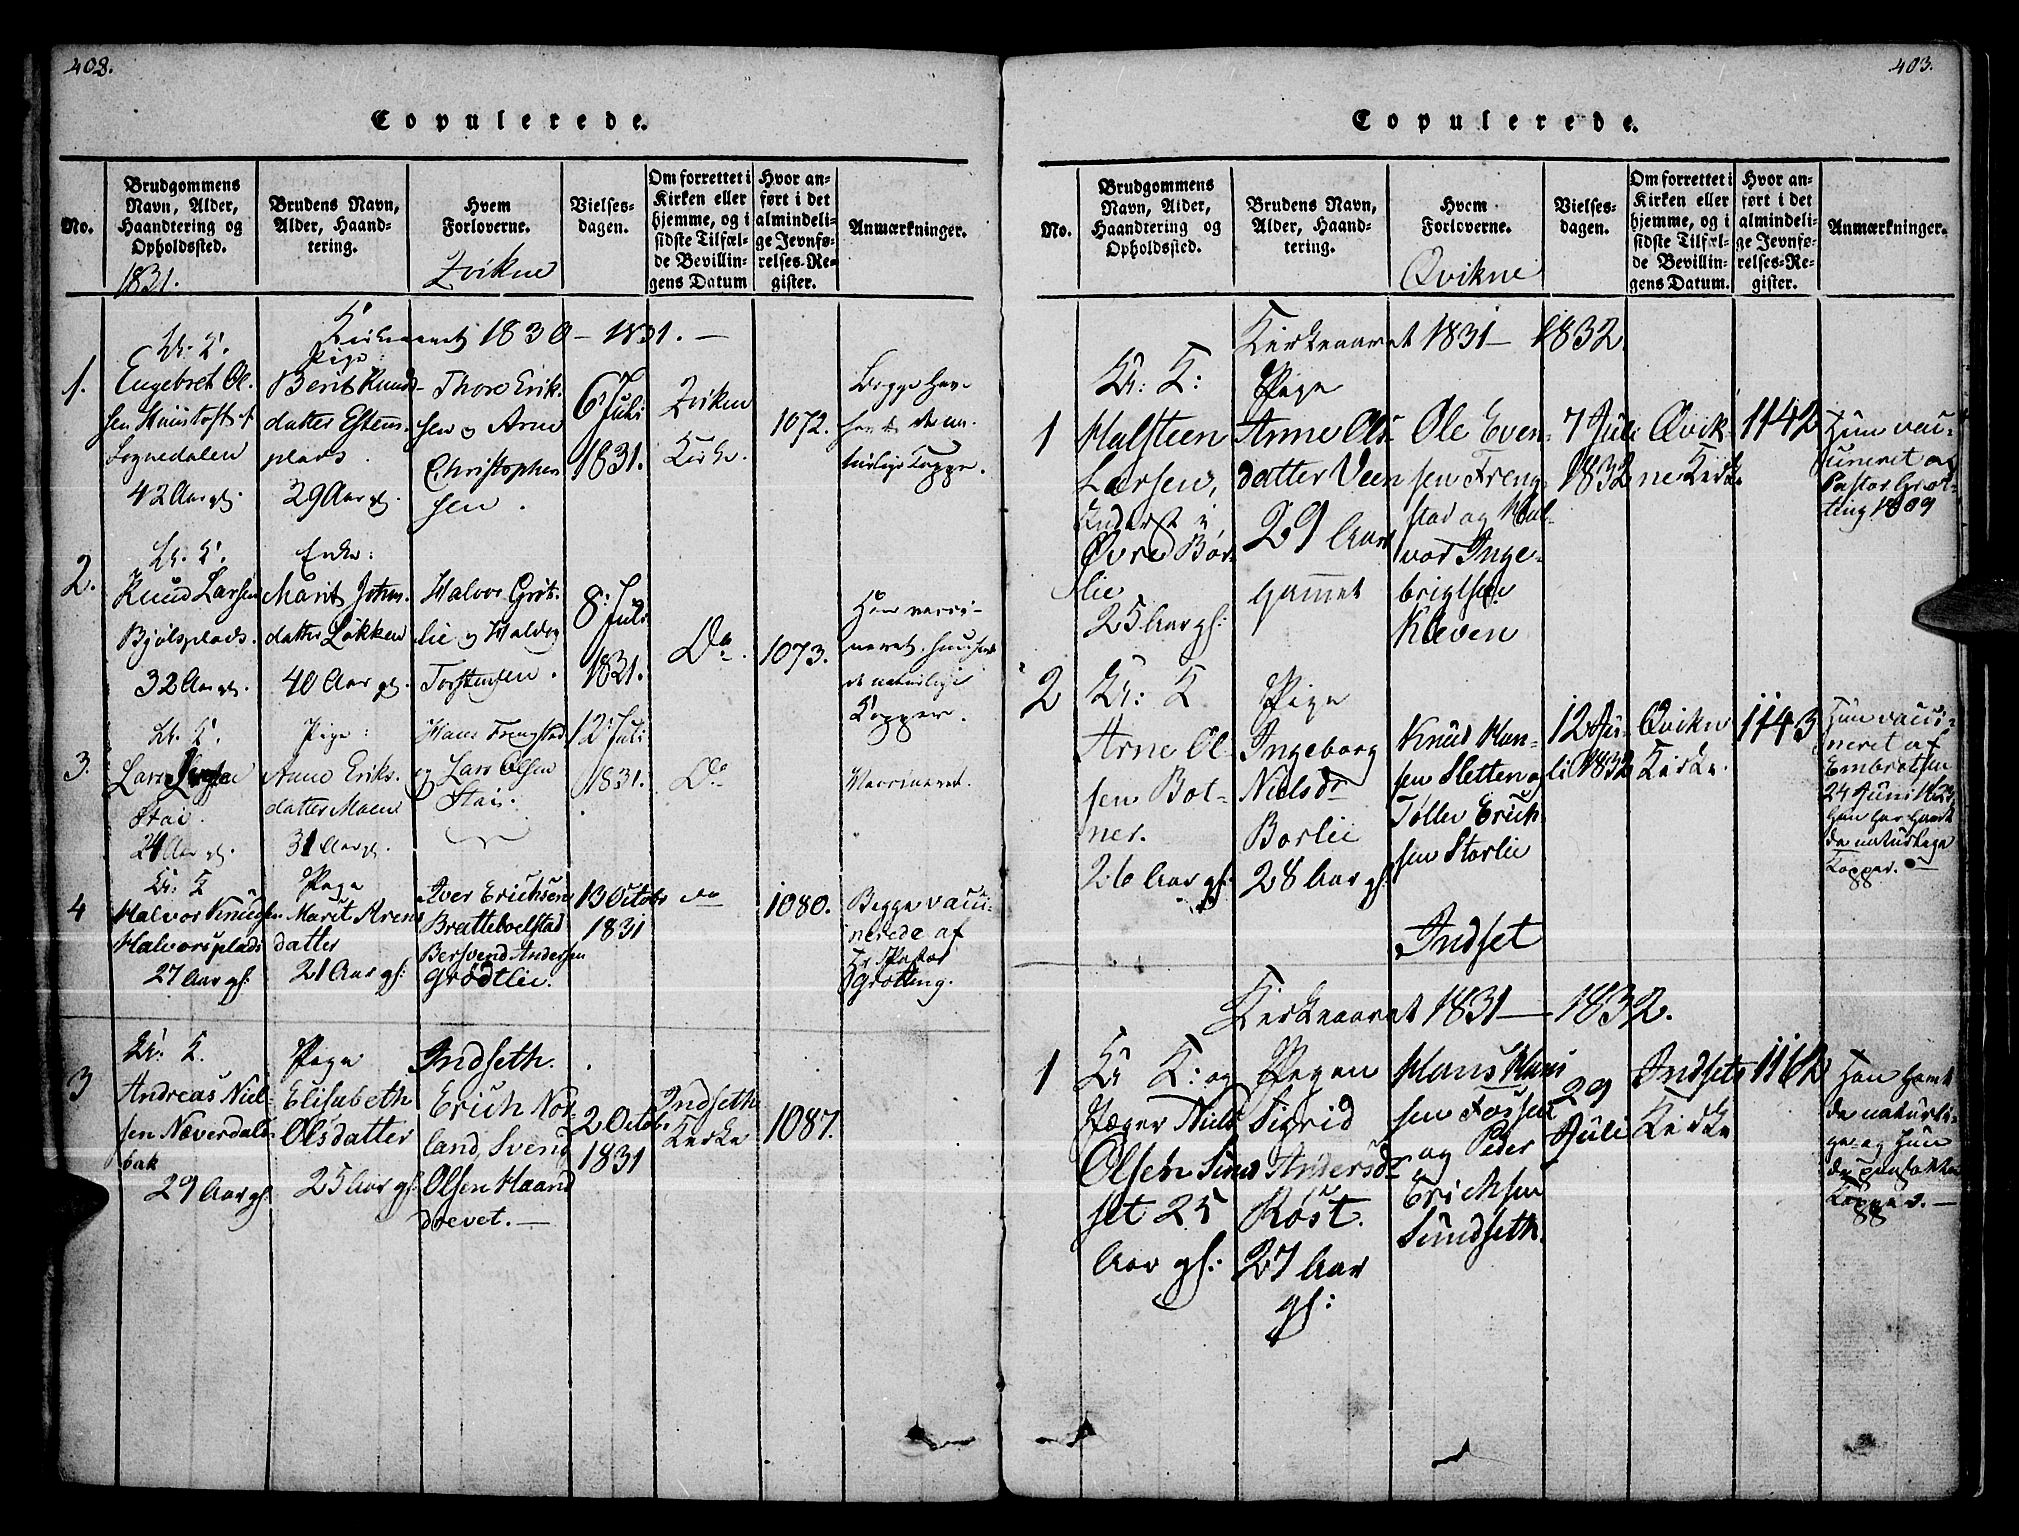 402.
Copulerede.
No.
Brudgommens
Navn, Alder,
Haandtering og
Opholdssted.
1831.
Brudens Navn,
Alder, Haand-
tering.
Hvem
Forloverne.
Qvikne
Vielses-
dagen.
Om forrettet i
Kirken eller
hjemme, og i
sidste Tilfæl-
de Bevillin-
gens Datum
Hvor an-
ført i det
almindeli-
ge Jevnfø-
relses-Re-
gister.
Anmærkninger.
Kirkeaaret 1830 - 1831. -
1.
U. K.
Engebret Ol-
sen
Sognedalen
42 Aar gl.
Pige:
Berit Knuds-
datter Estens-
plads.
29 Aar gl.
Thore Erik-
sen og Arne
Christopher-
sen.
6 Juli
1831.
Qvikne
Kirke.
1072.
Begge hav-
de na-
turlige Kopper.
2.
U. K.
Knud Larsen
Bjølsplads.
32 Aar gl.
Enke:
Marit John-
datter Løkken
40 Aar gl.
Halvor Grøt-
lie og Haldog
Torstensen.
8 Juli
1831.
Do.
1073.
Han vacci-
neret.
de naturlige
Kopper.
3.
U. K.
Lars
Stai.
24 Aar gl.
Pige:
Anne Eriks-
datter Moen
31 Aar gl.
Hans Frengstad
og Lars Olsen
Stai.
12 Juli
1831.
Do
Vaccineret.
4
U. K
Halvor Knudsen
Halvorsplads
27 Aar gl:
Pige
Marit Arens
datter
21 Aar gl:
Iver Erichsen
Bratteboelstad
Bersvend Andersen
Grødtlie.
13 Octobr
1831
do
1080.
Begge vacci-
nerede af
Hr Pastor
Grötting.
3
U. K.
Andreas Niel-
sen Næverdals-
bak
29 Aar gl:
Pige
Elisabeth
Olsdatter
25 Aar gl:
Indseth.
Erich Nor-
land, Svend
Olsen Haand
drevet. —
2 Octob.
1831
Indseth
Kirke
1087.
403.
Copulerede.
No.
Brudgommens
Navn, Alder,
Haandtering og
Opholdssted.
Brudens Navn,
Alder, Haand-
tering.
Hvem
Forloverne.
Qvikne
Vielses-
dagen.
Om forrettet i
Kirken eller
hjemme, og i
sidste Tilfæl-
de Bevillin-
gens Datum.
Hvor an-
ført i det
almindeli-
ge Jevnfø-
relses-Re-
gister.
Anmærkninger.
Kirkeaaret 1831 — 1832.
1
U: K:
Halsteen
Larsen,
Inderst i
Øvre Bør-
lie
25 Aar gl:
Pige
Anne Ols-
datter Veen
29 Aar
gammel
Ole Even-
sen Freng-
stad og Hal-
vor Inge-
brigtsen
Kleven
7 Juli
1832
Qvik-
ne Kirke
1142
Hun vac-
cineret af
Pastor Gröt-
ting 1809
2
U: K
Arne Ol-
sen Bol-
ner.
26 Aar gl:
Pige
Ingeborg
Nielsdr
Borlie
28 Aar gl:
Knud Han-
sen Sletten og
Tøller Erich-
sen Storlie
12 Ju-
li 1832
Qvikne
Kirke.
1143
Hun vacci-
neret af
Embretsen
24 Juni
Han har havt
de naturlige
Kopper. —
Indset
Kirkeaaret 1831 — 1832.
1
U K: og
Jæger Niels
Olsen Sund
set 25
Aar gl:
Pigen
Sigrid
Andersdr
Röst.
27 Aar
gl:
Hans Hans
sen Fossen
og Peder
Erichsen
Sundseth.
29
Juli
Indsets
Kirke
1162
Han havt
de naturli-
ge og Hun
de
Kopper. —